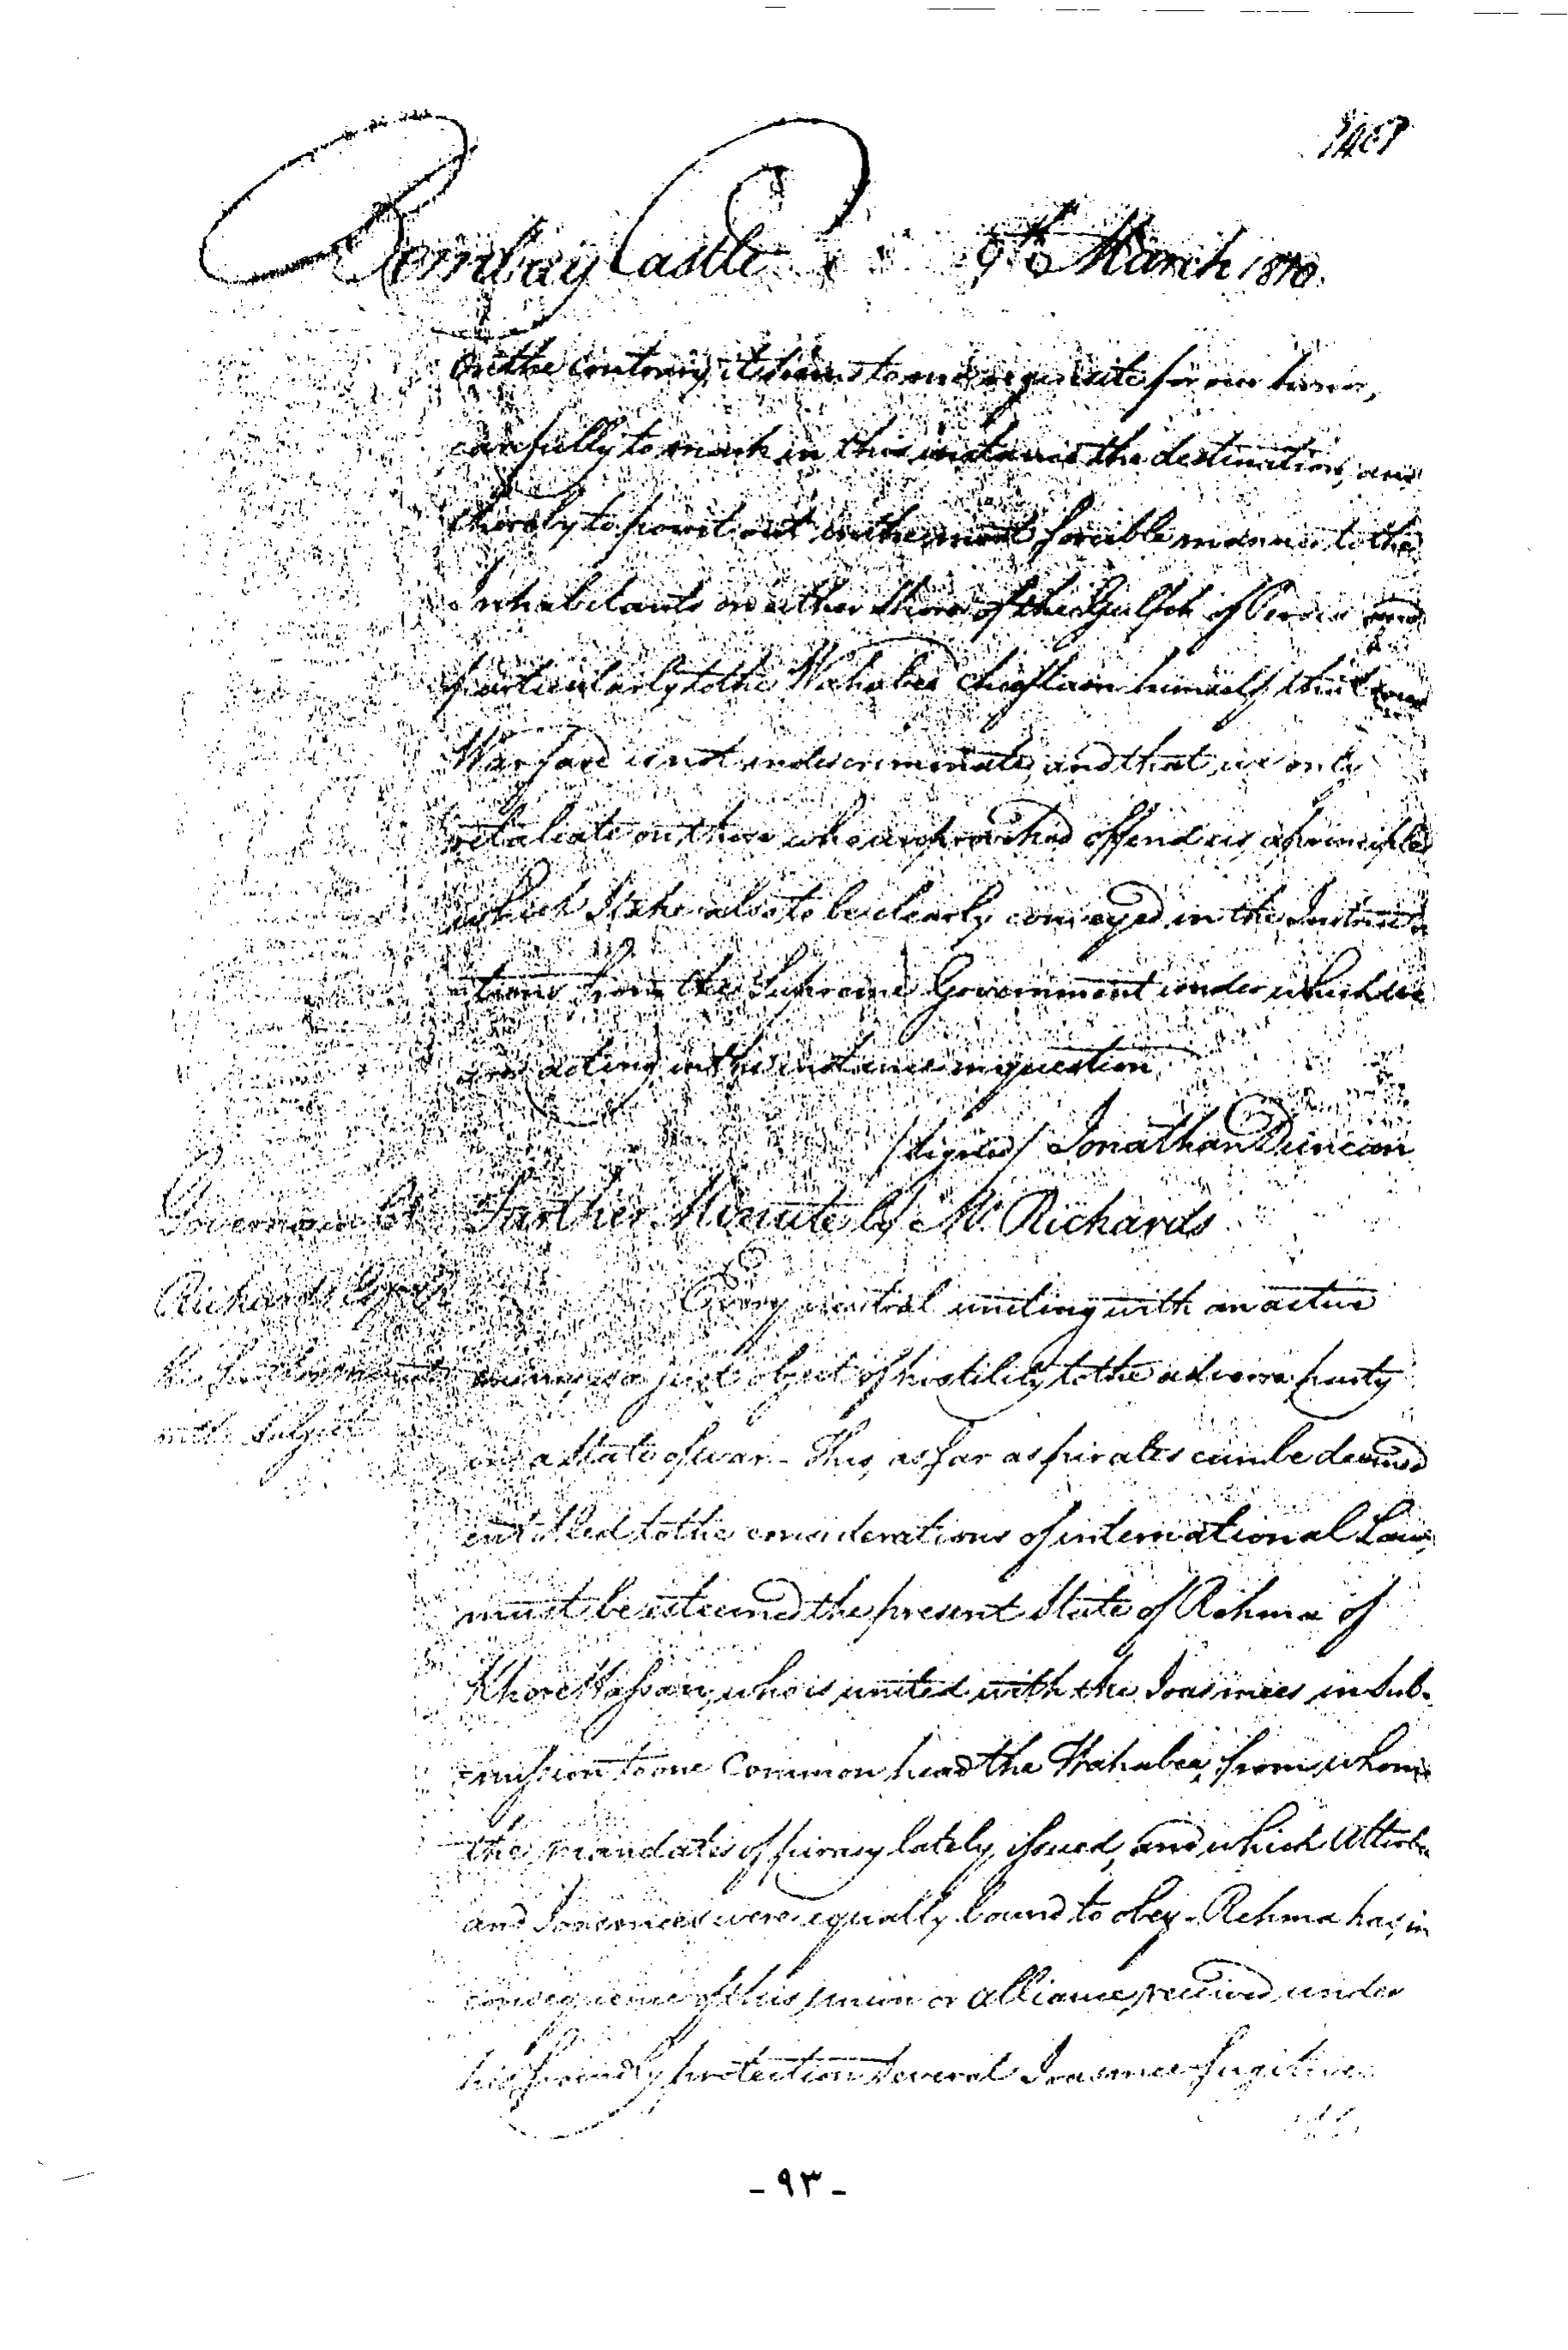 Bombay Castle 9th March 1810.
On the contrary, it seems to me requisite for our honor,
carefully to mark in this instance the destination, and
thereby to point out in the most forcible manner to the
Inhabitants on either Shore of the Gulph of Persia and
particularly to the Wahabee Chieftain himself, that our
Warfare is not indiscriminate, and that we only
retaliate on those who unprovoked offend us, a principle
which I take also to be clearly conveyed in the Instruc-
-tions from the Supreme Government under which we
are acting in the instance in question.
/signed/ Jonathan Duncan
Further Minute by Mr. Richards
Richards
Every neutral uniting with an active
enemy is a just object of hostility to the adverse party
subject
in a State of war - This, as far as pirates can be deemed
entitled to the considerations of international Law,
must be esteemed the present State of Rehma of
Khore Hassan, who is united with the Joasmees in sub-
-mission to one Common head the Wahabee, from whom
the mandates of piracy lately issued, and which
and Joasmees were equally bound to obey - Rehma has, in
consequence of this union or alliance, received under
his friendly protection several Joasmee fugitives
- ٩٣ -